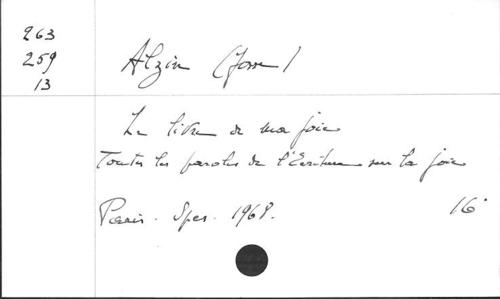 263
259
13
Alzin (Josse)
Le livre de ma joie
Toutes les paroles de l'Ecriture sur la joie
Paris. Spes. 1968. 16°